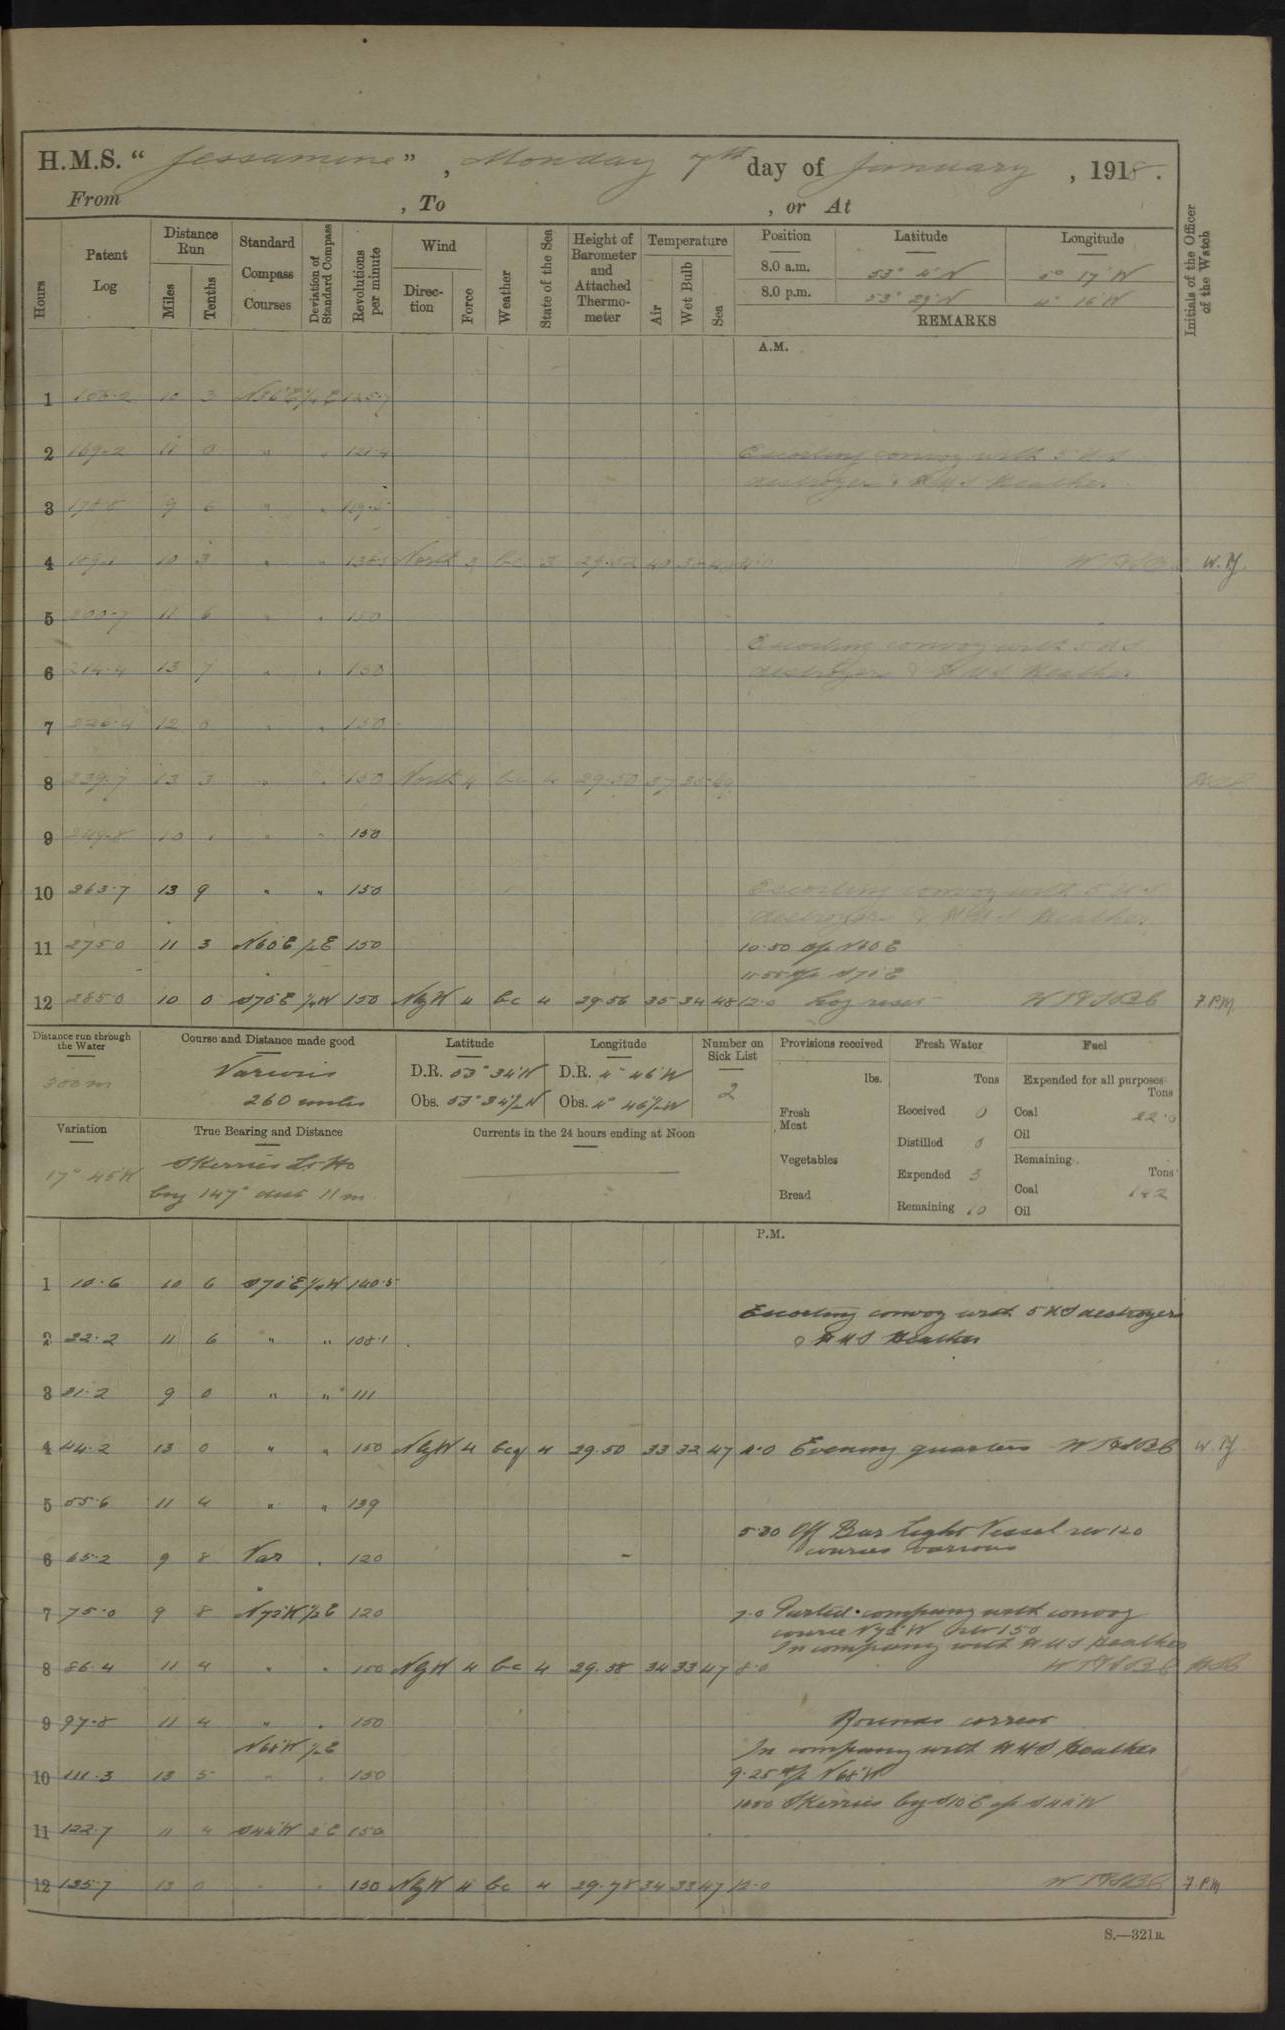 H.M.S. " Jessamine " , Monday 7th day of January , 1918.
From , To , or At
Hours
Patent Log
Distance Run
Miles
Tenths
Standard Compass Courses
Deviation of Standard Compass
Revolutions per minute
Wind
Direction
Force
Weather
State of the Sea
Height of Barometer and Attached Thermometer
Temperature
Air
Wet Bulb
Sea
Position Latitude Longitude
8.0 a.m. 53° 4' N 5° 17' W
8.0 p.m. 53° 29' N 4° 16' W
REMARKS
Initials of the Officer of the Watch
A.M.
1 10 3 N56E ½E 125.7
2 169.2 11 0 " " 121.4
Escorting convoy with 5 US
destroyers & HMS Heather.
3 178.8 9 6 " " 119.5
4 189.1 10 3 " " North 3 bc 3 29.52 40 4.0 W.P.
5 200.7 11 6 " " 150
Escorting convoy with 5 US
destroyers & HMS Heather.
6 214.4 13 7 " " 150
7 226.4 12 0 " " 150
8 239.7 13 3 " " 150 North 4 bc 4 29.50 37 35
9 249.8 10 1 " " 150
10 263.7 13 9 " " 150
Escorting convoy with 5 US
destroyers & HMS Heather.
11 275.0 11 3 N60E ½E 150 10.50 a/c N60E
11.55 a/c S70E
12 285.0 10 0 S70E ¼W 150 NbyW 4 bc 4 29.56 35 34 48 12.0 Log reset F.P.M.
Distance run through the Water
300 m
Course and Distance made good
Various
260 miles
Latitude
D.R. 53° 34' N
Obs. 53° 34½ N
Longitude
D.R. 4° 46' W
Obs. 4° 46½ W
Number on Sick List
2
Provisions received
lbs.
Fresh Meat
Vegetables
Bread
Fresh Water
Tons
Received 0
Distilled 0
Expended 3
Remaining 10
Fuel
Expended for all purposes
Tons
Coal 22.0
Oil
Remaining
Tons
Coal 142
Oil
Variation
17° 45 W
True Bearing and Distance
Skerries Lt Ho
brg 147° dist 11 m
Currents in the 24 hours ending at Noon
P.M.
1 10.6 10 6 S70E ¼W 140.5
Escorting convoy with 5 US destroyers
& HMS Heather
2 22.2 11 6 " " 108.1
3 31.2 9 0 " " 111
4 44.2 13 0 " " 150 NbyW 4 bcq 4 29.50 33 32 47 4.0 Evening quarters W.P.
5 55.6 11 4 " " 139
5.30 Off Bar Light Vessel rev 120
courses various
6 65.2 9 8 Var " 120
7 75.0 9 8 N72W ½E 120 7.0 Parted company with convoy
course N72W rev 150
In company with HMS Heather
8 86.4 11 4 " " 150 NbyW 4 bc 4 29.58 34 33 47 8.0
9 97.8 11 4 " " 150 Rounds correct
N68W ½E In company with HMS Heather
10 111.3 13 5 " " 150 9.25 a/c N68W
10.50 Skerries brg S10E a/c S44W
11 122.7 11 4 S44W 2E 150
12 135.7 13 0 " " 150 NbyW 4 bc 4 29.78 34 33 47 12.0 F.P.M
S.—321B.